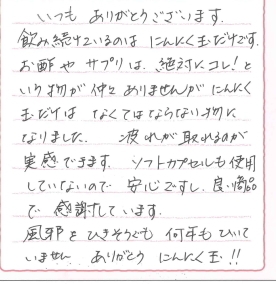 いつも ありがとうございます.
飲み続けているのは にんにく玉だけです.
お酢や サプリは、絶対に コレ!と
いう物が 仲々 ありませんが にんにく
玉だけは なくてはならない物に
なりました. 疲れが取れるのが
実感できます. ソフトカプセルも使用
していないので 安心ですし、良い商品
で 感謝しています.
風邪を ひきそうでも 何年も ひいて
いません ありがとう にんにく玉!!